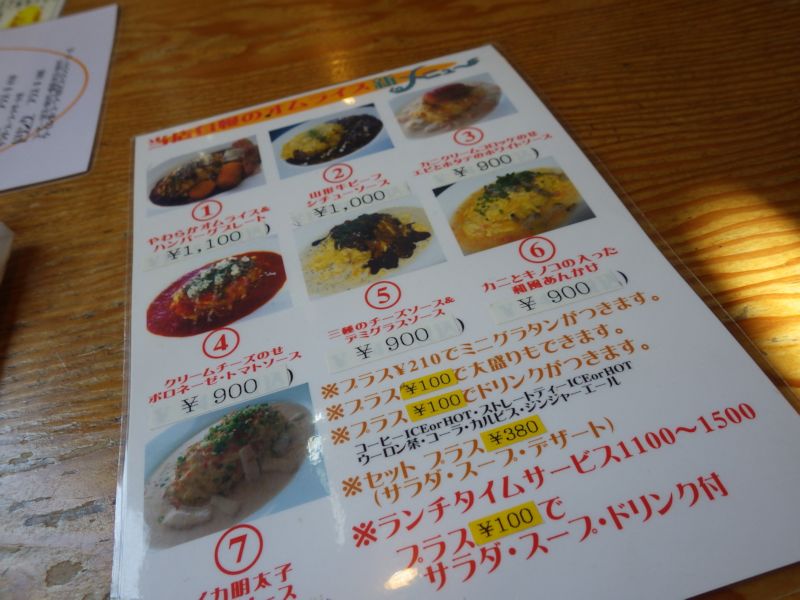 当店自慢のオムライス メニュー
①
やわらかオムライス&
ハンバーグプレート
¥1,100 )
②
山形牛ビーフ
シチューソース
¥1,000
③
カニクリームコロッケのせ
エビとホタテのホワイトソース
¥ 900 )
④
クリームチーズのせ
ボロネーゼ・トマトソース
¥ 900 )
⑤
三種のチーズソース&
デミグラスソース
¥ 900 )
⑥
カニとキノコの入った
和風あんかけ
¥ 900 )
⑦
イカ明太子
ース
※プラス¥210でミニグラタンがつきます。
※プラス¥100で大盛りもできます。
※プラス¥100でドリンクがつきます。
コーヒーICEorHOT・ストレートティーICEorHOT
ウーロン茶・コーラ・カルピス・ジンジャーエール
※セット プラス¥380
(サラダ・スープ・デザート)
※ランチタイムサービス1100〜1500
プラス¥100で
サラダ・スープ・ドリンク付